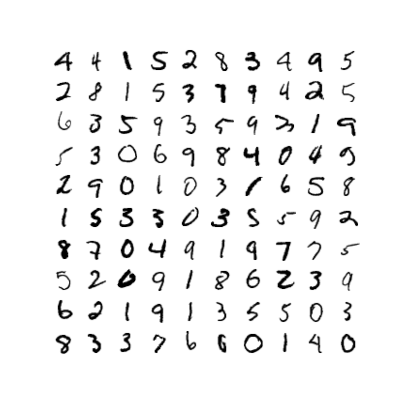 4 4 1 5 2 8 3 4 9 5
2 8 1 5 3 7 9 4 2 5
6 3 5 9 3 5 9 3 1 9
5 3 0 6 9 8 4 0 4 5
2 9 0 1 0 3 1 6 5 8
1 5 3 3 0 3 5 5 9 2
8 7 0 4 9 1 9 7 7 5
5 2 0 9 1 8 6 2 3 9
6 2 1 9 1 3 5 5 0 3
8 3 3 7 6 6 0 1 4 0